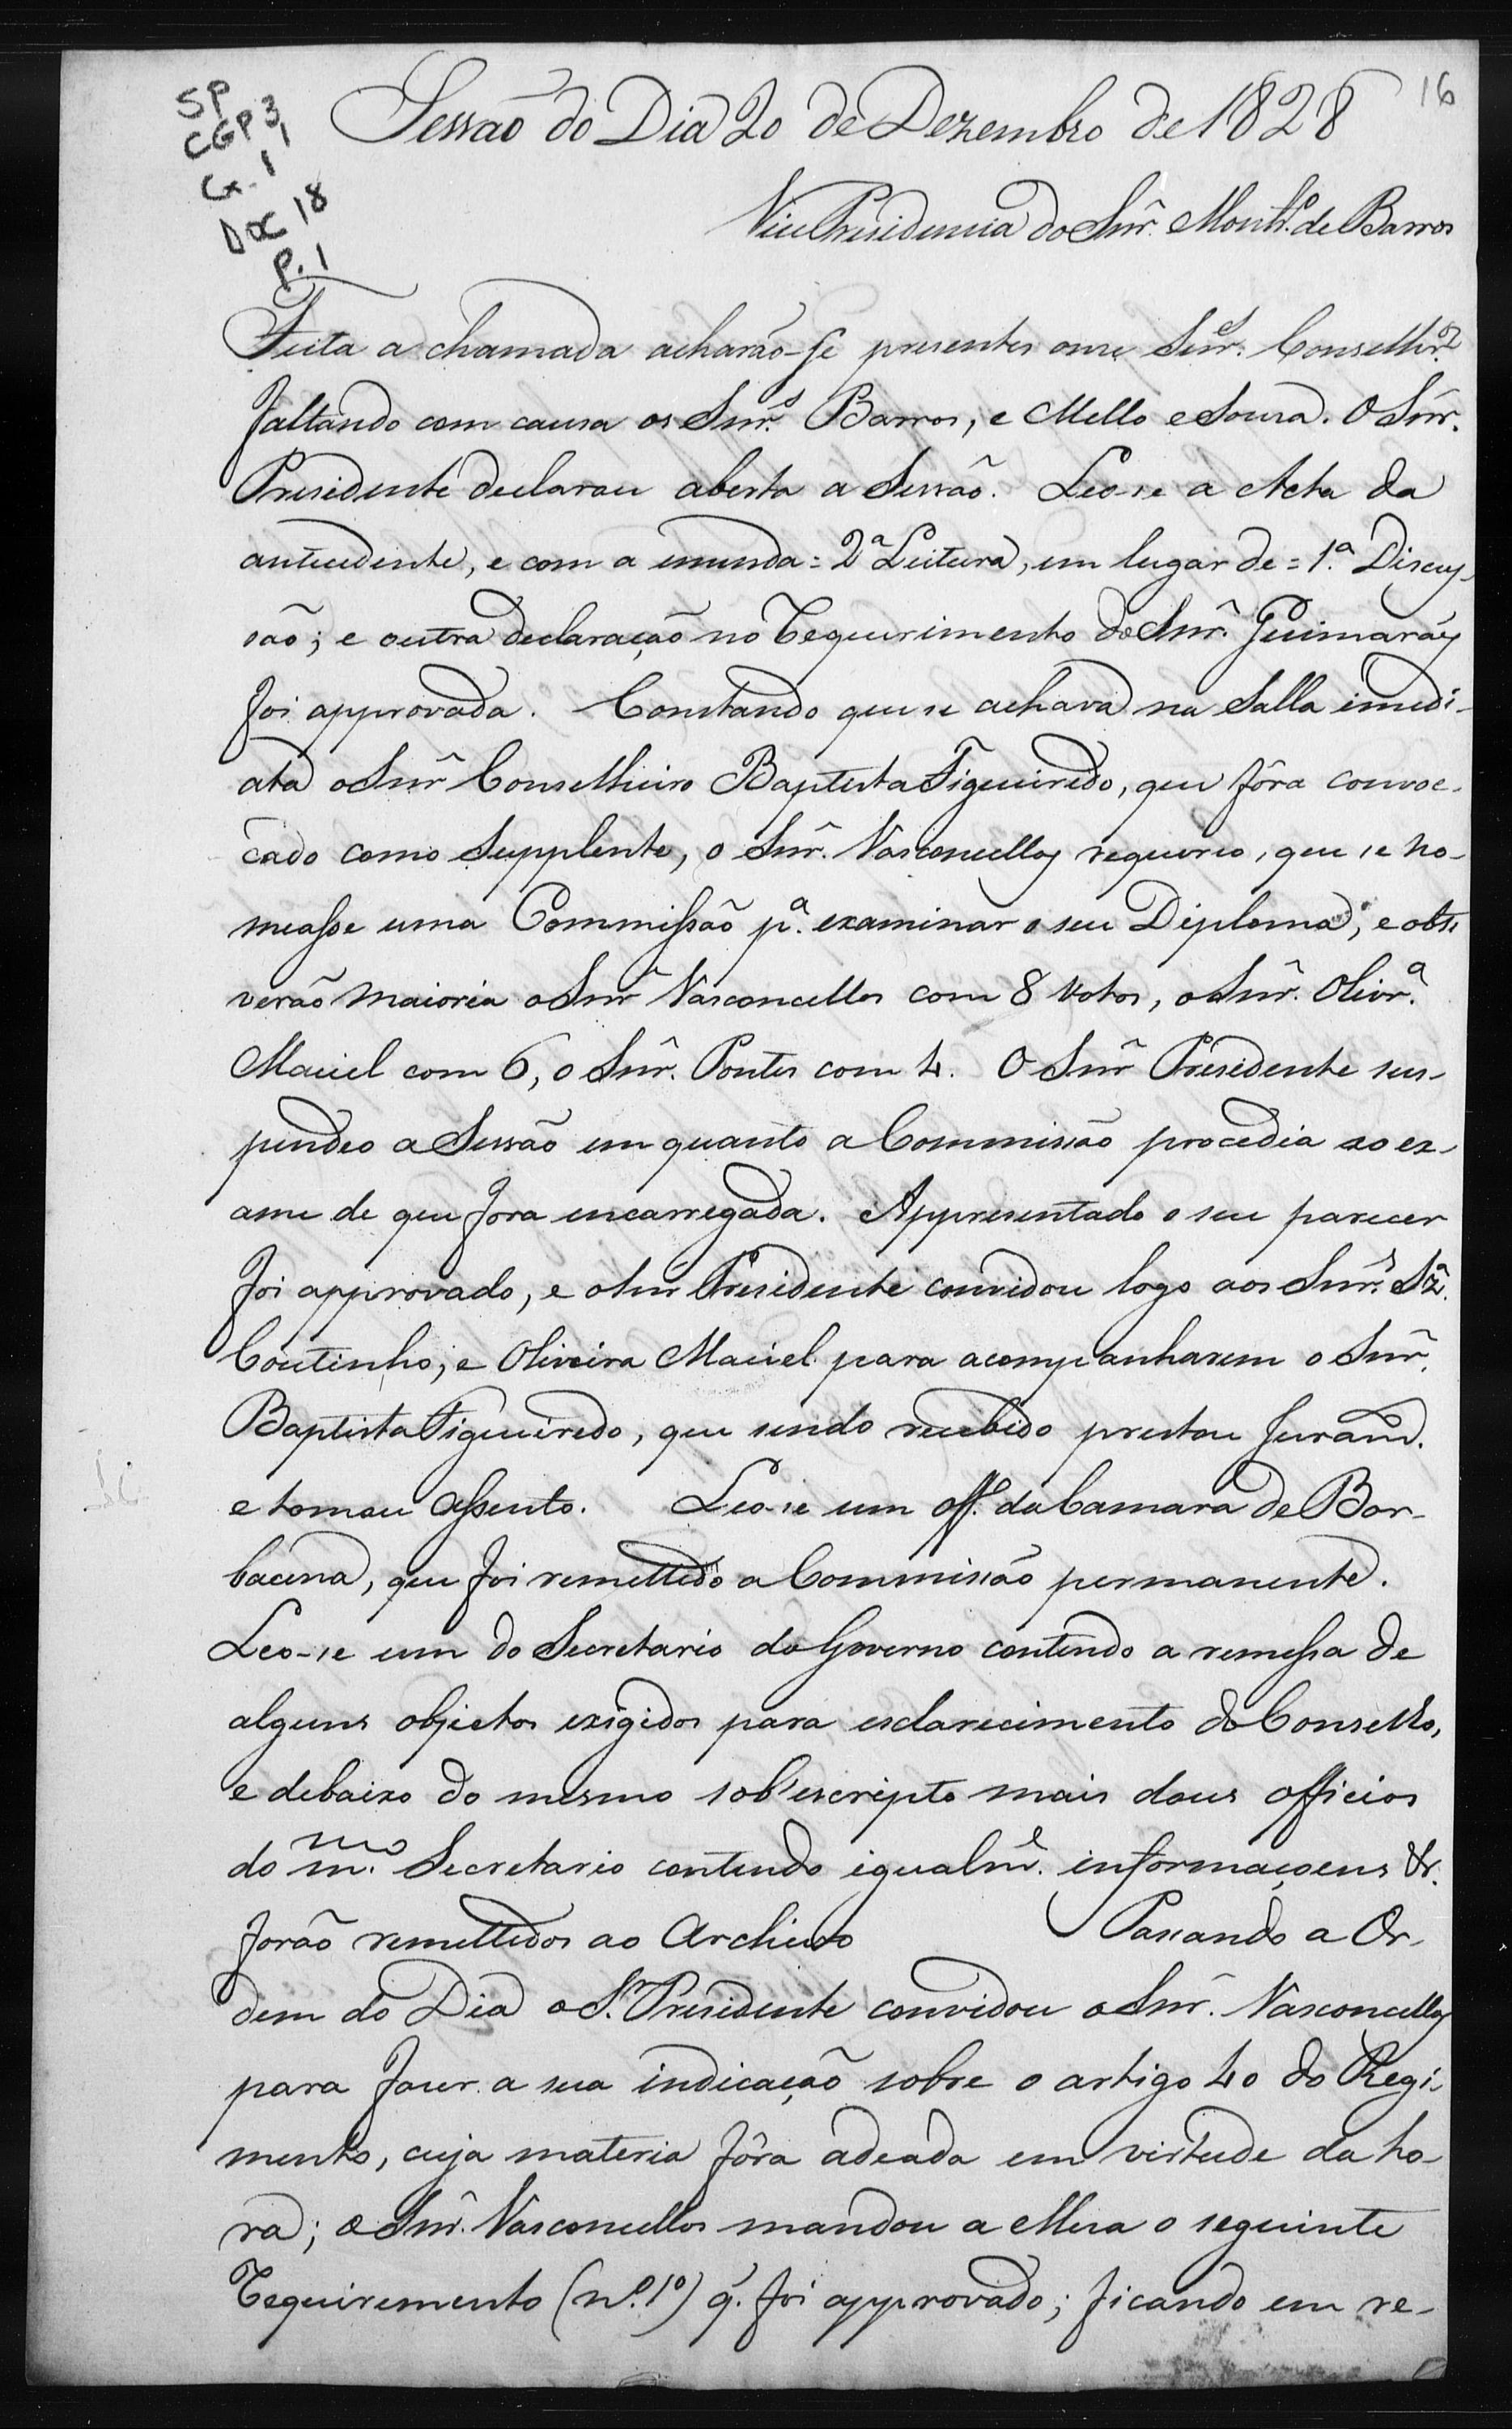 16
SP
CGP 3,1
Cx. 1
Doc 18
P. 1
Sessão do Dia 20 de Dezembro de 1828
Vice Presidencia do Snr. Montr.º de Barros
Feita a chamada acharão-se presentes onze Snr.es Conselhr.os
faltando com causa os Snr.s Barros, e Mello e Souza. O Snr.
Presidente declarou aberta a Sessão. Leo-se a Acta da
antecedente, e com a emenda = 2ª Leitura, em lugar de = 1.ª Discus-
são; e outra declaração no Requerimento do Snr. Guimarães
foi approvada. Constando que se achava na Salla imedi-
ata o Snr Conselheiro Baptista Figueiredo, que fôra convoc-
cado como Supplente, o Snr. Vasconcellos requereo, que se no-
measse uma Commissão p.ª examinar o seu Diploma; e obti
verão maioria o Snr Vasconcellos com 8 votos, o Snr. Olivr.ª
Maciel com 6, o Snr. Pontes com 4. O Snr Presidente sus-
pendeo a Sessão em quanto a Commissão procedia ao ex-
ame de que fora encarregada. Appresentado o seu parecer
foi approvado, e o Snr Presidente convidou logo aos Snr.s
Coutinho, e Oliveira Maciel para acompanharem o Snr.
Baptista Figueiredo, que sendo recebido prestou Juram.
e tomou assento. Leo-se um off.º da Camara de Bar-
bacena, que foi remettido a Commissão permanente.
Leo-se um do Secretario do Governo contendo a remessa de
alguns objectos exigidos para esclarecimento do Conselho,
e debaixo do mesmo sob'escripto mais dous officios
do m.mo Secretario contendo igualm.e informaçoens &.
forão remettidos ao Archivo Passando a Or-
dem do Dia o S.r Presidente convidou o Snr. Vasconcellos
para fazer a sua indicação sobre o artigo 40 do Regi-
mento, cuja materia fôra adeada em virtude da ho-
ra; o Snr. Vasconcellos mandou a Mesa o seguinte
Requiremento (n.º 1º) q. foi approvado; ficando em re-